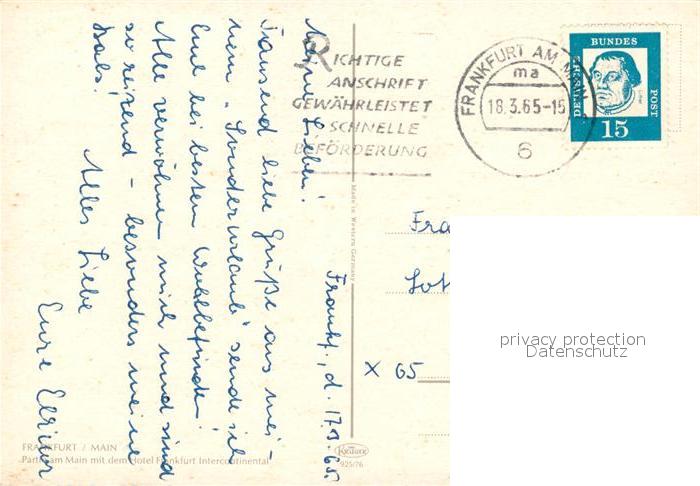 Frankf., d. 17.3.65.
Meine Lieben!
Tausend liebe Grüße aus mei-
nem „Sonderurlaub" sende ich
Euch bei bestem Wohlbefinden!
Alle verwöhnen mich und sind
so reizend - besonders meine
Alles Liebe
Eure
RICHTIGE
ANSCHRIFT
GEWÄHRLEISTET
SCHNELLE
BEFÖRDERUNG
FRANKFURT AM MAIN
ma
18.3.65-15
6
DEUTSCHE
BUNDES
POST
15
Made in Western Germany
Fra
Lot
X 65
privacy protection
Datenschutz
FRANKFURT / MAIN
Partie am Main mit dem Hotel Frankfurt Intercontinental
Krüger
925/76